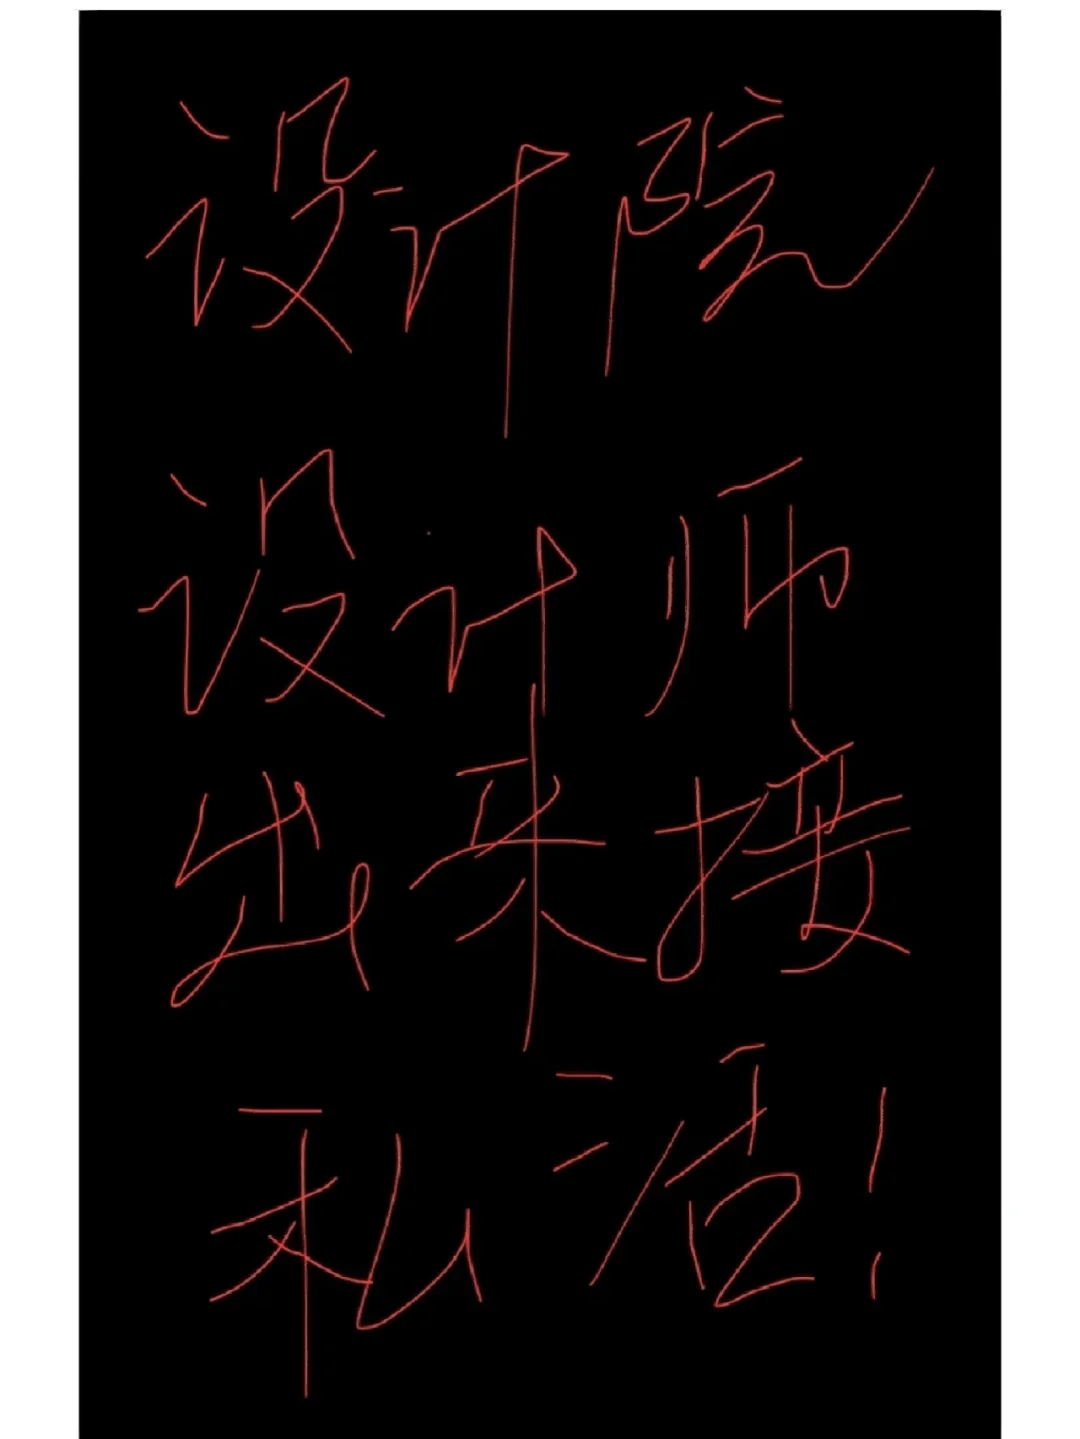 设计院
设计师
出来接
私活！